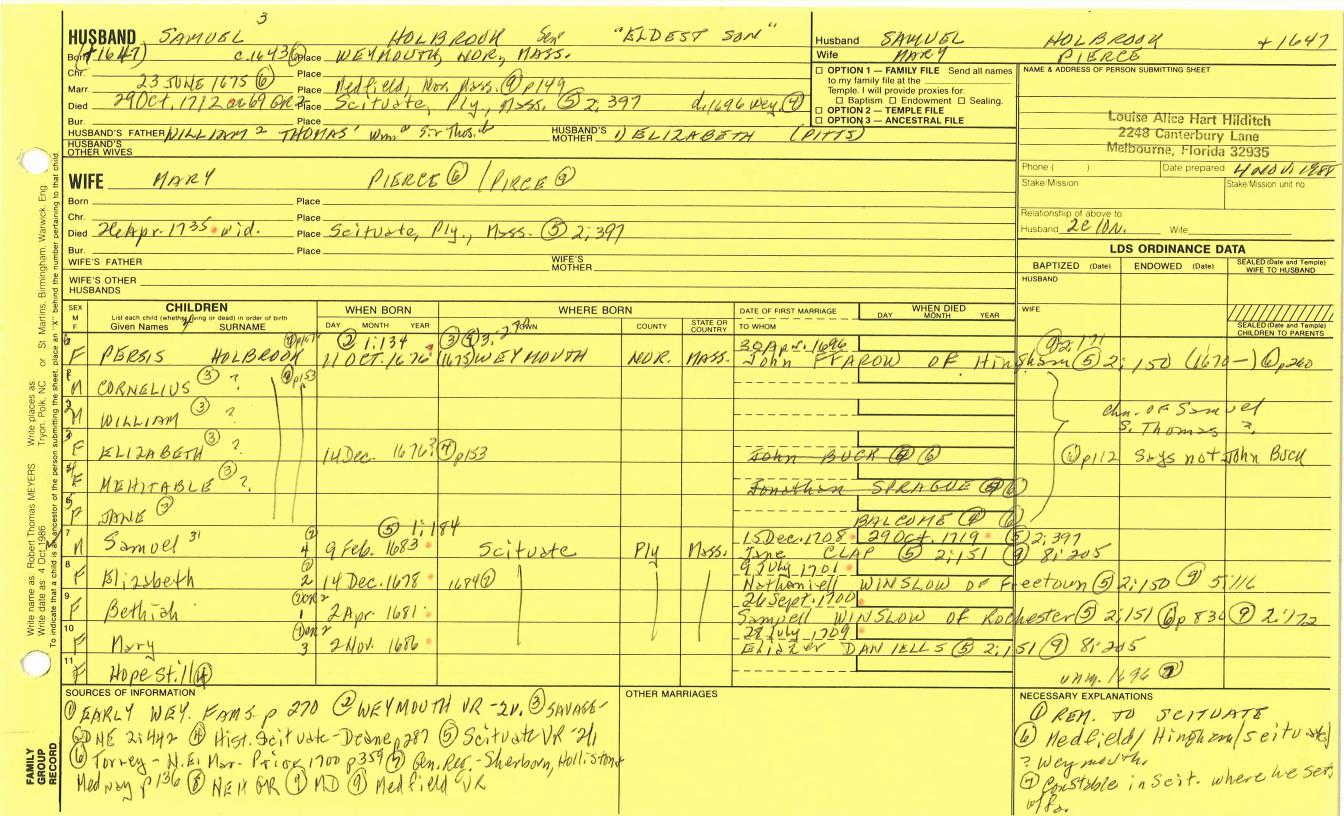 3
HUSBAND SAMUEL HOLBROOK Senr "ELDEST SON"
Born (+1647) c.1643 ⑥ Place WEYMOUTH, NOR, MASS.
Chr. Place
Marr. 23 JUNE 1675 ⑥ Place Medfield, Nor. Mass. ⑨ p149
Died 29 Oct. 1712 Place Scituate, Ply., Mass. ⑤ 2; 397 d. 1696 Wey ④
Bur. Place
HUSBAND'S FATHER WILLIAM 2 THOMAS' HUSBAND'S MOTHER 1) ELIZABETH (PITTS)
HUSBAND'S OTHER WIVES
Husband SAMUEL HOLBROOK +1647
Wife MARY PIERCE
OPTION 1 — FAMILY FILE Send all names to my family file at the
Temple. I will provide proxies for:
Baptism Endowment Sealing.
OPTION 2 — TEMPLE FILE
OPTION 3 — ANCESTRAL FILE
NAME & ADDRESS OF PERSON SUBMITTING SHEET
Louise Alice Hart Hilditch
2248 Canterbury Lane
Melbourne, Florida 32935
Phone ( ) Date prepared 4 NOV 1988
Stake/Mission Stake/Mission unit no
Relationship of above to
Husband Wife
WIFE MARY PIERCE ⑥ / PIRCE ⑨
Born Place
Chr. Place
Died 26 Apr. 1735 wid. Place Scituate, Ply., Mass. ⑤ 2; 397
Bur. Place
WIFE'S FATHER WIFE'S MOTHER
WIFE'S OTHER HUSBANDS
LDS ORDINANCE DATA
BAPTIZED (Date) ENDOWED (Date) SEALED (Date and Temple) WIFE TO HUSBAND
HUSBAND
WIFE
SEALED (Date and Temple) CHILDREN TO PARENTS
SEX M F
CHILDREN
List each child (whether living or dead) in order of birth
Given Names SURNAME
WHEN BORN
DAY MONTH YEAR
WHERE BORN
TOWN COUNTY STATE OR COUNTRY
DATE OF FIRST MARRIAGE
TO WHOM
WHEN DIED
DAY MONTH YEAR
② 1; 134 30 Apr. 1696
F PERSIS HOLBROOK 11 OCT. 1676 1675 WEYMOUTH NOR. MASS. John FFAROW OF Hingham ⑤ 2; 150 (1670-) ⑥ p260
M CORNELIUS ③ ? p153
M WILLIAM ③ ?
F ELIZABETH ③ ? 14 Dec. 1676? ④ p153 John BUCK ⑥
F MEHITABLE ③ ? Jonathan SPRAGUE
F JANE ③ BALCOME
chn. of Samuel
S. Thomas ?
p112 Says not John Buck
⑤ 1; 184
7 M Samuel 4 9 Feb. 1683 Scituate Ply Mass. 15 Dec. 1708 29 Oct. 1719 ⑤ 2; 397
Jane CLAP ⑤ 2; 151 ⑨ 8; 205
8 F Elizabeth 2 14 Dec. 1678 1684 9 July 1701
Nathaniell WINSLOW OF Freetown ⑤ 2; 150 ⑨ 5; 116
9 F Bethiah 1 2 Apr 1681 26 Sept. 1700
Sampell WINSLOW OF Rochester ⑤ 2; 151 ⑥ p 830 ⑨ 2; 172
10 F Mary 3 2 Nov. 1686 28 July 1709
Eliezer DANIELLS ⑤ 2; 151 ⑨ 8; 205
11 F Hope Still ④ unm. 1696
SOURCES OF INFORMATION
① EARLY WEY. FAMS. p 270 ② WEYMOUTH VR -2v. ③ SAVAGE-
GDNE 2; 442 ④ Hist. Scituate-Deane p287 ⑤ Scituate VR
⑥ Torrey - N.E. Mar. Prior 1700 p359 ⑦ Gen. Reg. - Sherborn, Holliston
Medway p136 ⑧ NEHGR ⑨ MD ⑨ Medfield VR
OTHER MARRIAGES
NECESSARY EXPLANATIONS
① REM. TO SCITUATE
⑥ Medfield / Hingham / Scituate /
? Weymouth
Constable in Scit. where he set.
FAMILY GROUP RECORD
Write name as Robert Thomas MEYERS Write places as Tryon, Polk, NC or St Martins, Birmingham, Warwick, Eng.
Write date as 4 Oct 1986
To indicate that a child is an ancestor of the person submitting the sheet, place an "X" behind the number pertaining to that child